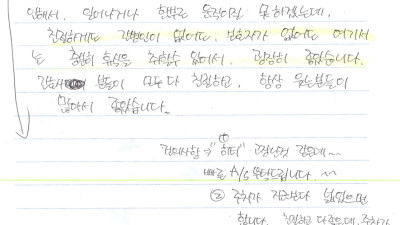 인해서, 일어나거나 함부로 움직이질 못하겠는데,
친절하게도 간병인이 없어도, 보호자가 없어도 여기서
는 충분히 휴식을 취할수 있어서, 굉장히 좋았습니다.
간호사 분들이 모두 다 친절하고, 항상 웃는분들이
많아서 좋았습니다.
건의사항→ ① "히터" 고장난것 같은데~~
빠른 A/S 부탁드립니다. ~~
② 주차가 지금보다 넓었으면
합니다. 친절하고 다 좋은데, 주차가